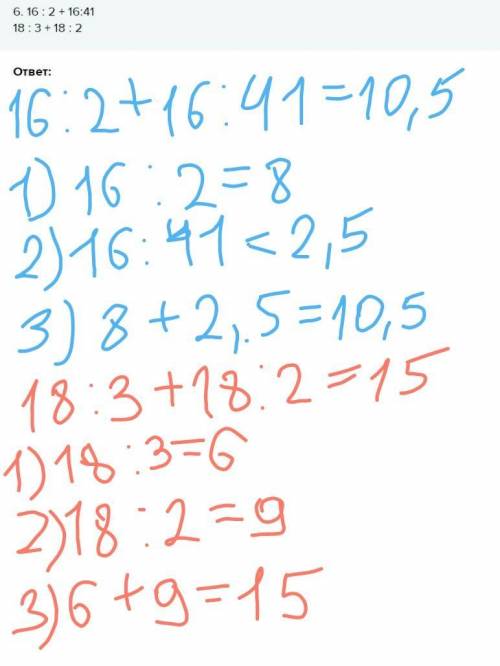 6. 16 : 2 + 16:41
18 : 3 + 18 : 2
Ответ:
16:2+16:41=10,5
1) 16 : 2=8
2) 16: 41 < 2,5
3) 8 + 2,.5=10,5
18:3+18:2=15
1) 18 :3=6
2) 18 : 2=9
3) 6 + 9=15